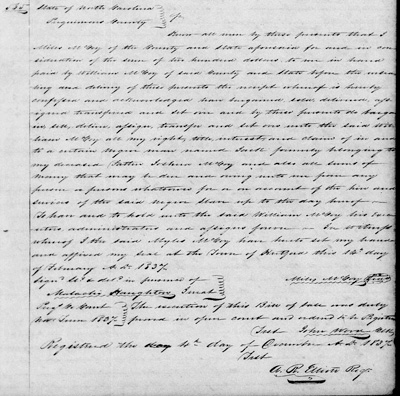 State of North Carolina
Perquimans County
Know all men by these presents that I
Miles McCoy of the County and State aforesaid for and in con-
sideration of the sum of two hundred dollars to me in hand
paid by William McCoy of said County and State before the enseal-
ing and delivery of these presents the receipt whereof is hereby
confessed and acknowledged have bargained sold delivered as-
signed transferred and set over and by these presents do bargain
sell deliver assign transfer and set over unto the said Will-
iam McCoy all my right title interest and claim of in and
to a certain negro man named Jack formerly belonging to
my deceased Father Joshua McCoy and also all sums of
Money that may be due and owing unto me from any
person or persons whatsoever for or on account of the hire and
services of the said negro Slave up to the day hereof
To have and to hold unto the said William McCoy his Exe-
cutors administrators and assigns forever In testimony
whereof I the said Myles McCoy have hereto set my hand
and affixed my seal at the Town of Hertford this day
of February A.D. 1837
Signd Seald & deld in presence of
Miles McCoy Seal
Malachi Haughton
The execution of this Bill of Sale was duly
Term 1837
proved in open court and ordered to be Registered
Test John Wood Clk
Registered the 4th day of December A.D. 1837
Test